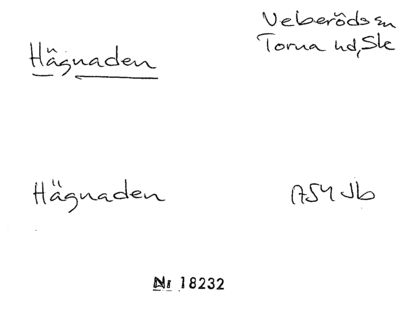 Hägnaden
Veberöds sn
Torna hd, Sk
Hägnaden
Nr 18232